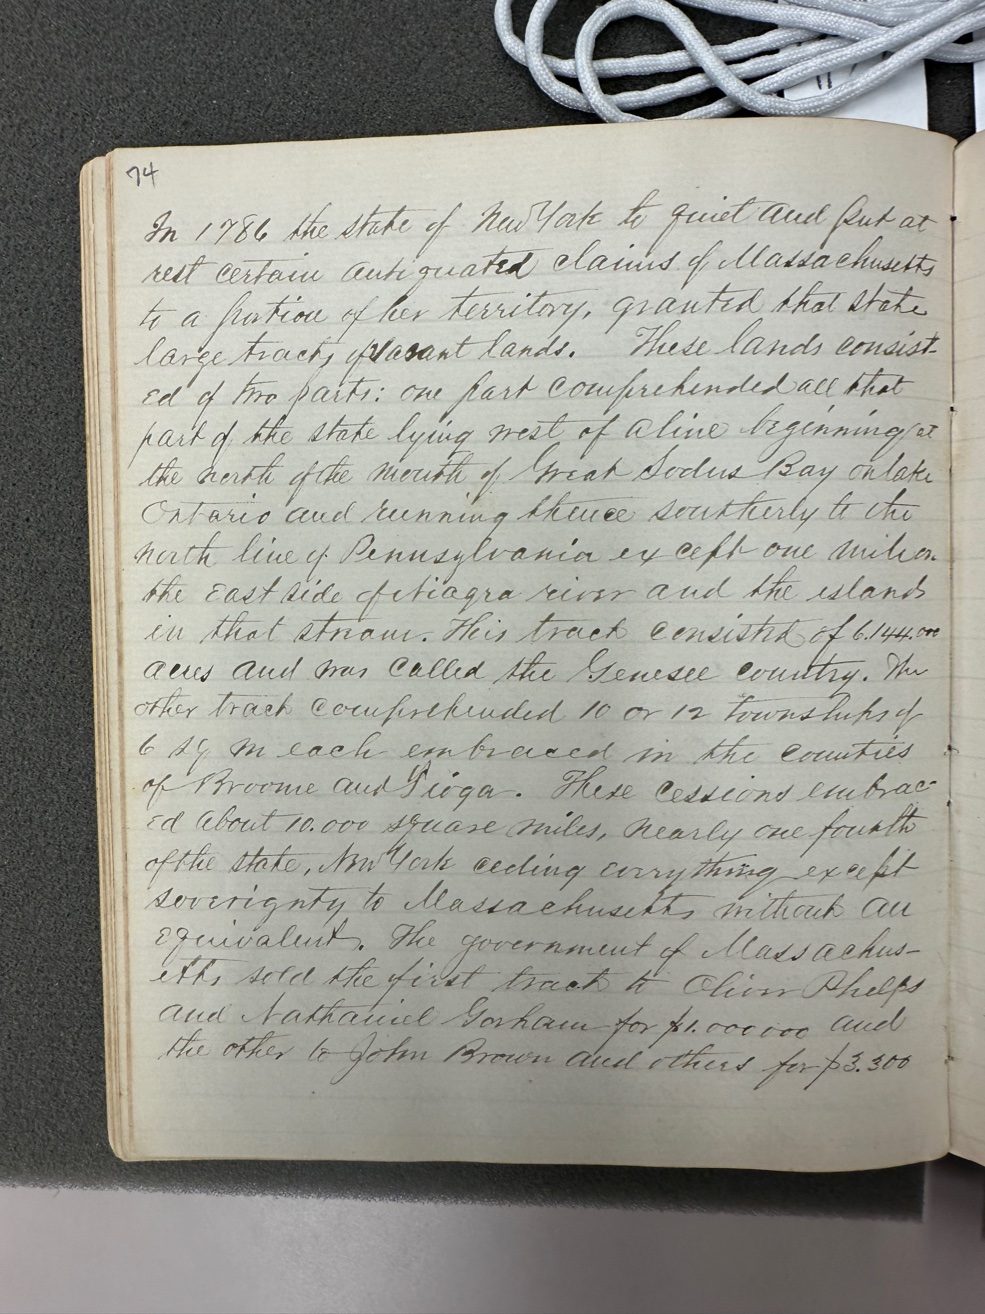 74
In 1786 the state of New York to quiet and put at
rest certain antiquated claims of Massachusetts
to a portion of her territory, granted that state
large tracts of vacant lands. These lands consist-
ed of two parts: one part comprehended all that
part of the state lying west of a line beginning at
the north of the mouth of Great Sodus Bay on lake
Ontario and running thence southerly to the
north line of Pennsylvania except one mile on
the East side of Niagra river and the islands
in that stream. This tract consisted of 6.144.000
acres and was called the Genesee country. The
other tract comprehended 10 or 12 townships of
6 sq m each embraced in the counties
of Broome and Tioga. These cessions embrac-
ed about 10.000 square miles, nearly one fourth
of the state, New York ceding everything except
soverignty to Massachusetts without an
equivalent. The government of Massachus-
etts sold the first tract to Oliver Phelps
and Nathaniel Gorham for $1.000000 and
the other to John Brown and others for $3.300